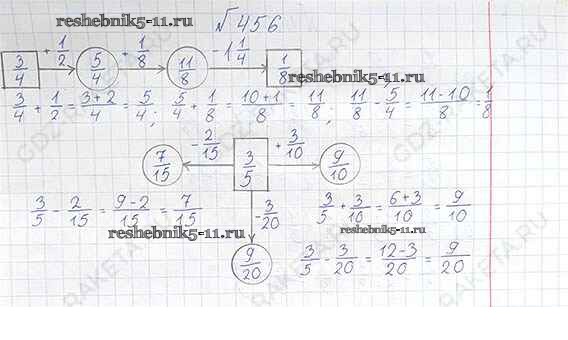 №456
reshebnik5-11.ru
3/4 + 1/2 5/4 + 1/8 11/8 - 1 1/4 1/8
reshebnik5-11.ru
3/4 + 1/2 = 3+2/4 = 5/4; 5/4 + 1/8 = 10+1/8 = 11/8; 11/8 - 5/4 = 11-10/8 = 1/8
7/15 - 2/15 3/5 + 3/10 9/10
3/5 - 2/15 = 9-2/15 = 7/15 - 3/20 3/5 + 3/10 = 6+3/10 = 9/10
reshebnik5-11.ru
9/20 3/5 - 3/20 = 12-3/20 = 9/20
GDZ-RAKETA.RU